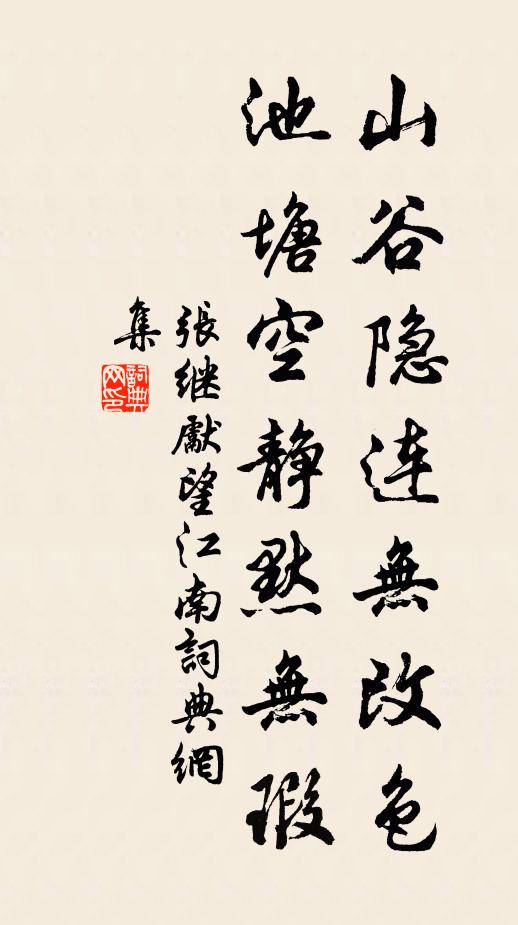 山谷隐连無改色
池塘空静默無瑕
張继獻望江南詞典網
集
詞典网印